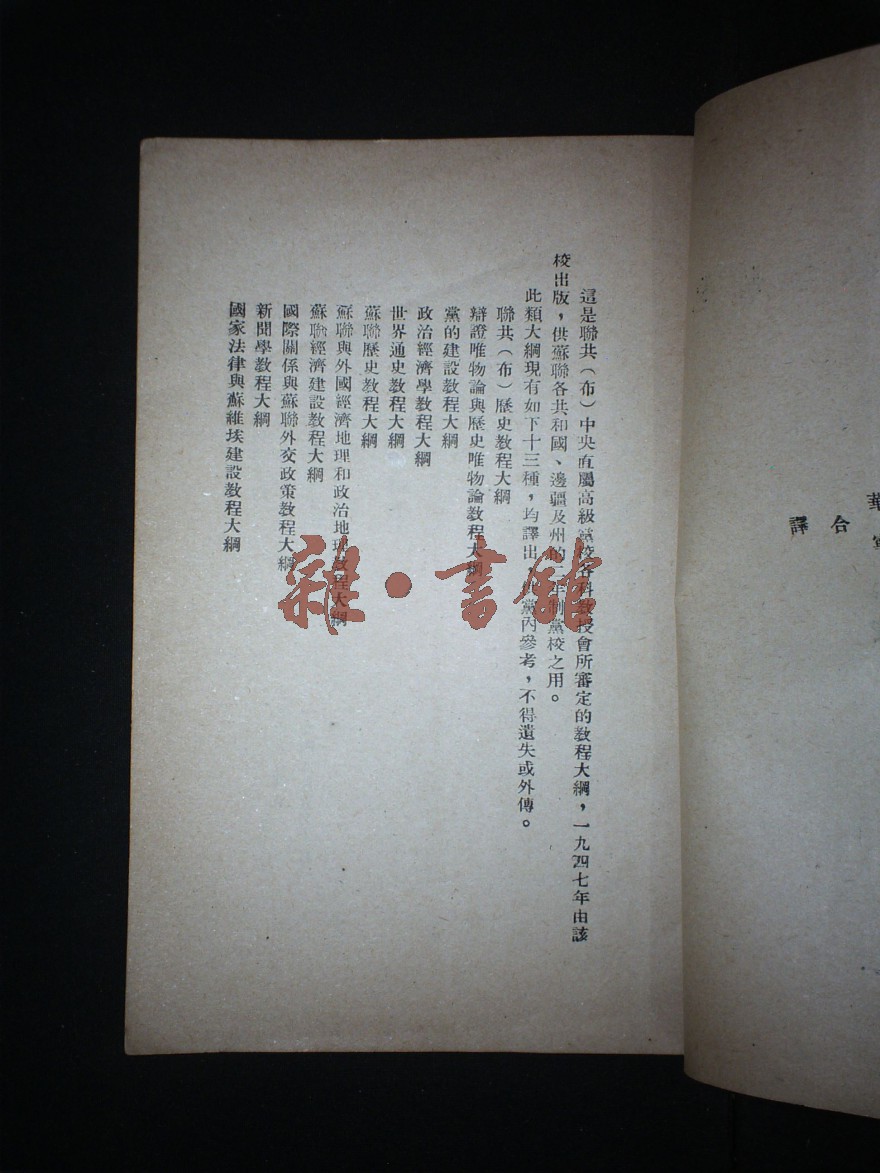 合譯
這是聯共（布）中央直屬高級黨校各科教授會所審定的教程大綱，一九四七年由該
校出版，供蘇聯各共和國、邊疆及州的年制黨校之用。
此類大綱現有如下十三種，均譯出，黨內參考，不得遺失或外傳。
聯共（布）歷史教程大綱
辯證唯物論與歷史唯物論教程大綱
黨的建設教程大綱
政治經濟學教程大綱
世界通史教程大綱
蘇聯歷史教程大綱
蘇聯與外國經濟地理和政治地理教程大綱
蘇聯經濟建設教程大綱
國際關係與蘇聯外交政策教程大綱
新聞學教程大綱
國家法律與蘇維埃建設教程大綱
雜·書館